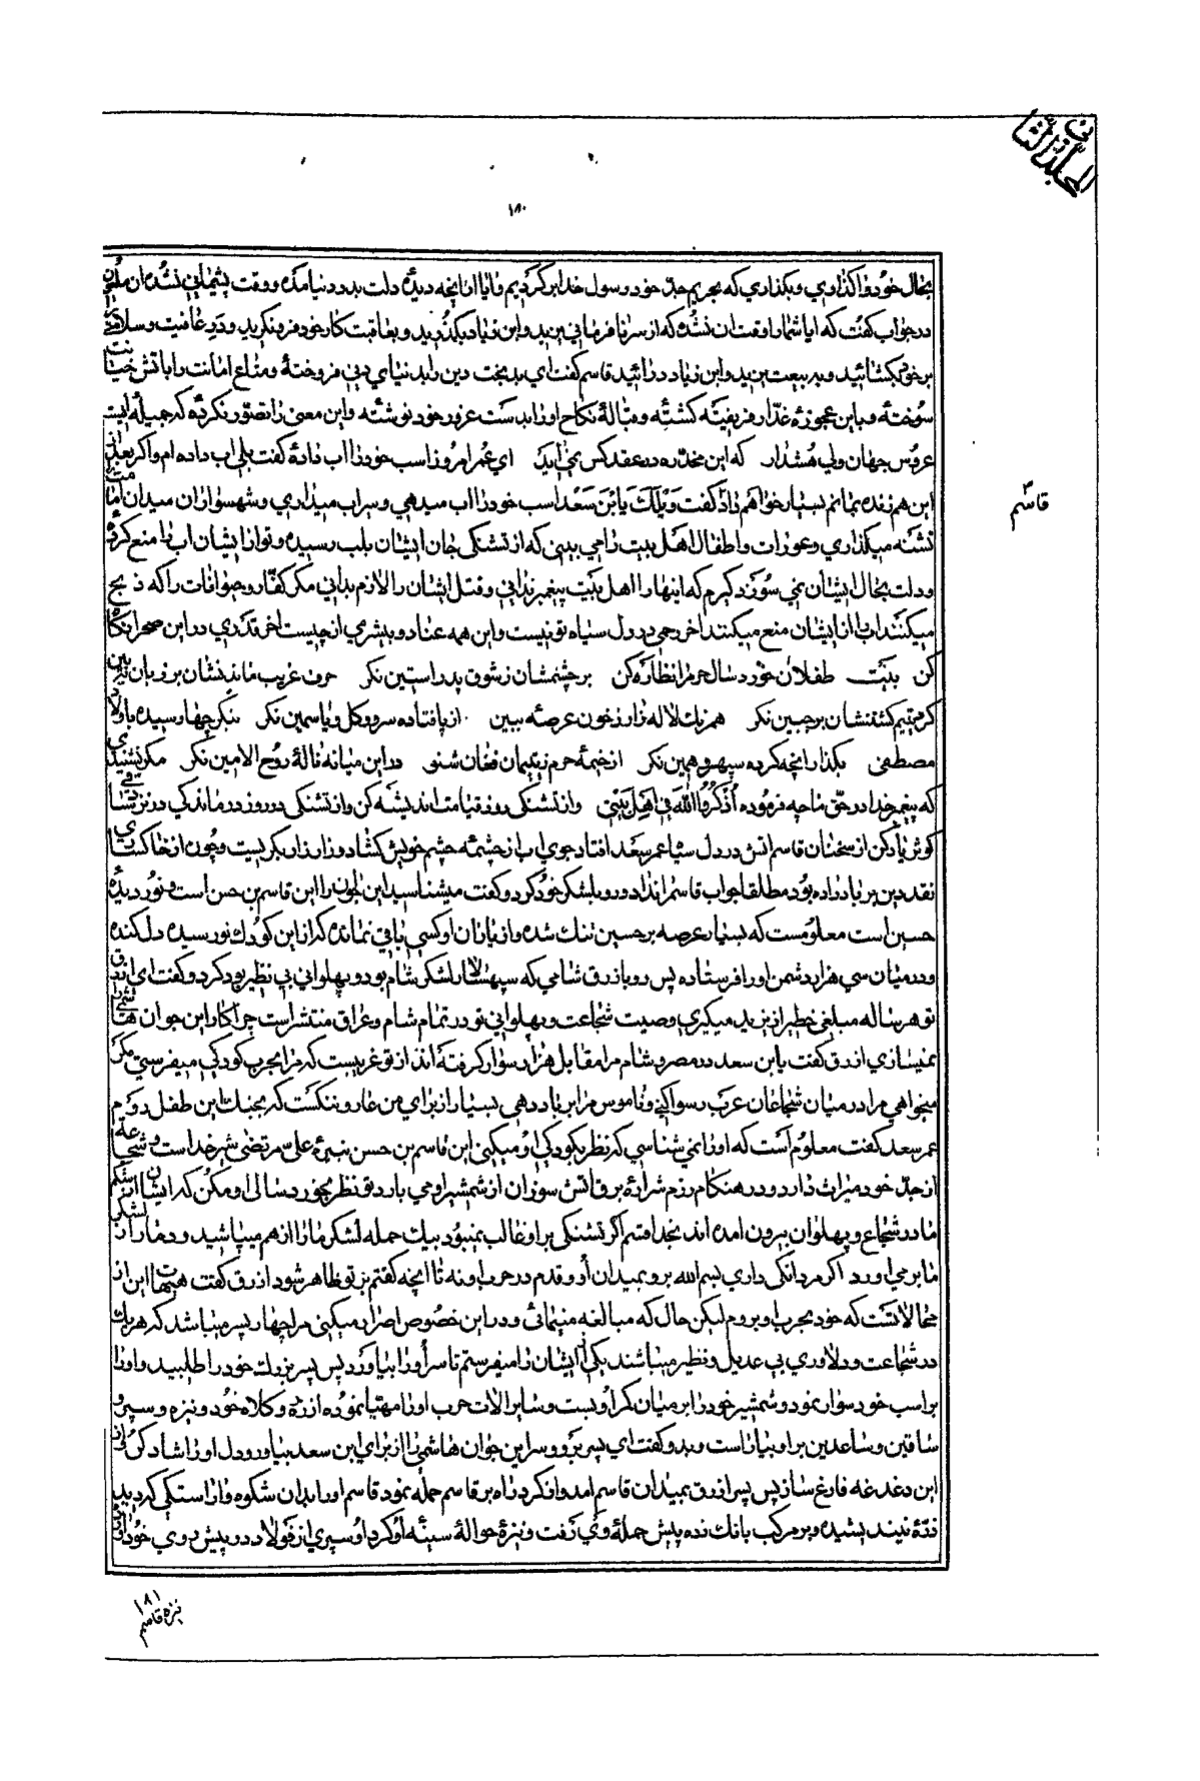 المجلد الثانی
۱۸۰
بحال خود واگذاری و بگذاری که بحریم جد خود رسول خدا برگردیم و ایا از انچه دیدهٔ دلت بدرد نیامده و وقت پشیمانی نشده ان ملعون
در جواب گفت که ایا شما را وقت ان نشده که از سر نافرمانی یزید و ابن زیاد بگذرید و بعاقبت کار خود فرو نگرید و در عافیت و سلامت
بر خود بگشائید و به بیعت یزید و ابن زیاد در ائید قاسم گفت ای بدبخت دین را بدنیای دنی فروختهٔ و متاع امانت را باتش خیانت
سوختهٔ و باین عجوزهٔ غدار فریفته گشتهٔ و قبالهٔ نکاح او را بدست غرور خود نوشتهٔ و این معنی را تصور نکردهٔ که جمیله ایست
عروس جهان ولی هشدار که این مخدره در عقد کس نمی اید ای عمر امروز اسب خود را اب دادهٔ گفت بلی اب داده ام و اگر بعد از
این هم زنده بمانم بسیار خواهم داد گفت وَیْلَكَ یَابْنَ سَعْد اسب خود را اب میدهی و سیراب میداری و شهسواران میدان امامت
تشنه میگذاری و عورات و اطفال اهل بیت را می بینی که از تشنگی جان ایشان بلب رسیده و تو از ایشان اب را منع کردهٔ
و دلت بحال ایشان نمی سوزد گیرم که اینها را اهل بیت پیغمبر ندانی و قتل ایشان را لازم بدانی مگر کفار و حیوانات را که ذبح
میکنند اب را از ایشان منع میکنند اخر رحمی در دل سیاه تو نیست و این همه عناد و بیشرمی از چیست اخر قدری در این صحرا نگاه
کن بیت طفلان خورد سال حرم را نظاره کن بر چشمشان ز شوق پدر استین نگر حرف غریب ماندنشان بر زبان ببین
گرد یتیم گشتنشان بر جبین نگر همرنگ لاله زار ز خون عرصه ببین از پا فتاده سرو و گل و یاسمین نگر بنگر چها رسیده باولاد
مصطفی بگذار انچه کرده سپهر و همین نگر از خیمهٔ حرم ز یتیمان فغان شنو در این میانه نالهٔ روح الامین نگر مگر نشنیدی
که پیغمبر خدا در حق ما چه فرموده اُذْکُرُوا اللهَ فی اَهْلِ بَیْتی و از تشنگی روز قیامت اندیشه کن و از تشنگی دو روز در ماندگی در نزد ساقی
کوثر یاد کن از سخنان قاسم اتش در دل سیاه عمر سعد افتاد جوی اب از چشمه چشم خویش گشاد و زار زار بگریست و چون از خاکساری
نقد دین بر باد داده بود مطلقا جواب قاسم را نداد و رو بلشکر خود کرد و گفت میشناسید این جوان را این قاسم بن حسن است و نور دیدهٔ
حسین است معلومست که بسیار عرصه بر حسین تنك شده و از یاران او کسی باقی نمانده که از این کودك نو رسیده دل کنده
و در میان سی هزار دشمن او را فرستاده پس رو بازرق شامی که سپهسالار لشکر شام بود و پهلوانی بی نظیر بود کرد و گفت ای ازرق
تو هر ساله مبلغی خطیر از یزید میگیری و صیت شجاعت و پهلوانی تو در تمام شام و عراق منتشر است چرا کار این جوان هاشمی را
نمیسازی ازرق گفت یابن سعد در مصر و شام مرا مقابل هزار سوار گرفته اند از تو غریبست که مرا بحرب کودکی میفرستی مگر
میخواهی مرا در میان شجاعان عرب رسوا کنی و ناموس مرا بر باد دهی بسیار از برای من عار و ننگست که بجنك این طفل روم
عمر سعد گفت معلوم است که او را نمی شناسی که نظر بکودکی او میکنی این قاسم بن حسن نبیرهٔ علی مرتضی شیر خداست و شجاعت
از جد خود میراث دارد و در هنگام رزم شرارهٔ برق اتش سوزان از شمشیر او می بارد تو نظر بخورد سالی او مکن که ایشان از شکم
مادر شجاع و پهلوان بیرون امده اند بخدا قسم اگر تشنگی بر او غالب نمیبود بیك حمله لشکر ما را از هم میپاشید و دمار از لشکر
ما بر می اورد اگر مردانگی داری بسم الله برو بمیدان او و قدم در حرب او نه تا انچه گفتم بر تو ظاهر شود ازرق گفت هیهات این از
محالاتست که خود بحرب او بروم لیکن حال که مبالغه مینمائی و در این خصوص اصرار میکنی مرا چهار پسر میباشد که هر یك
در شجاعت و دلاوری بی عدیل و نظیر میباشند یکی از ایشان را میفرستم تا سر او را بیاورد پس پسر بزرك خود را طلبید و او را
بر اسب خود سوار نمود و شمشیر خود را بر میان کمر او بست و سایر الات حرب او را مهیا نموده از زره و کلاه خود و نیزه و سپر و
ساقین و ساعدین بر او بیاراست و گفت ای پسر برو و سر این جوان هاشمی را از برای ابن سعد بیاور و دل او را شاد کن و از
این دغدغه فارغ ساز پس پسر ازرق بمیدان قاسم امد و از گرد راه بر قاسم حمله نمود قاسم او را بدان شکوه و اراستگی که بدید
ذرهٔ نیندیشیده و بر مرکب بانك زده پیش حملهٔ وی رفت و نیزهٔ حوالهٔ سینهٔ او کرد او سپری از فولاد در پیش روی خود
قاسم
۱۸۱
نیزه قاسم